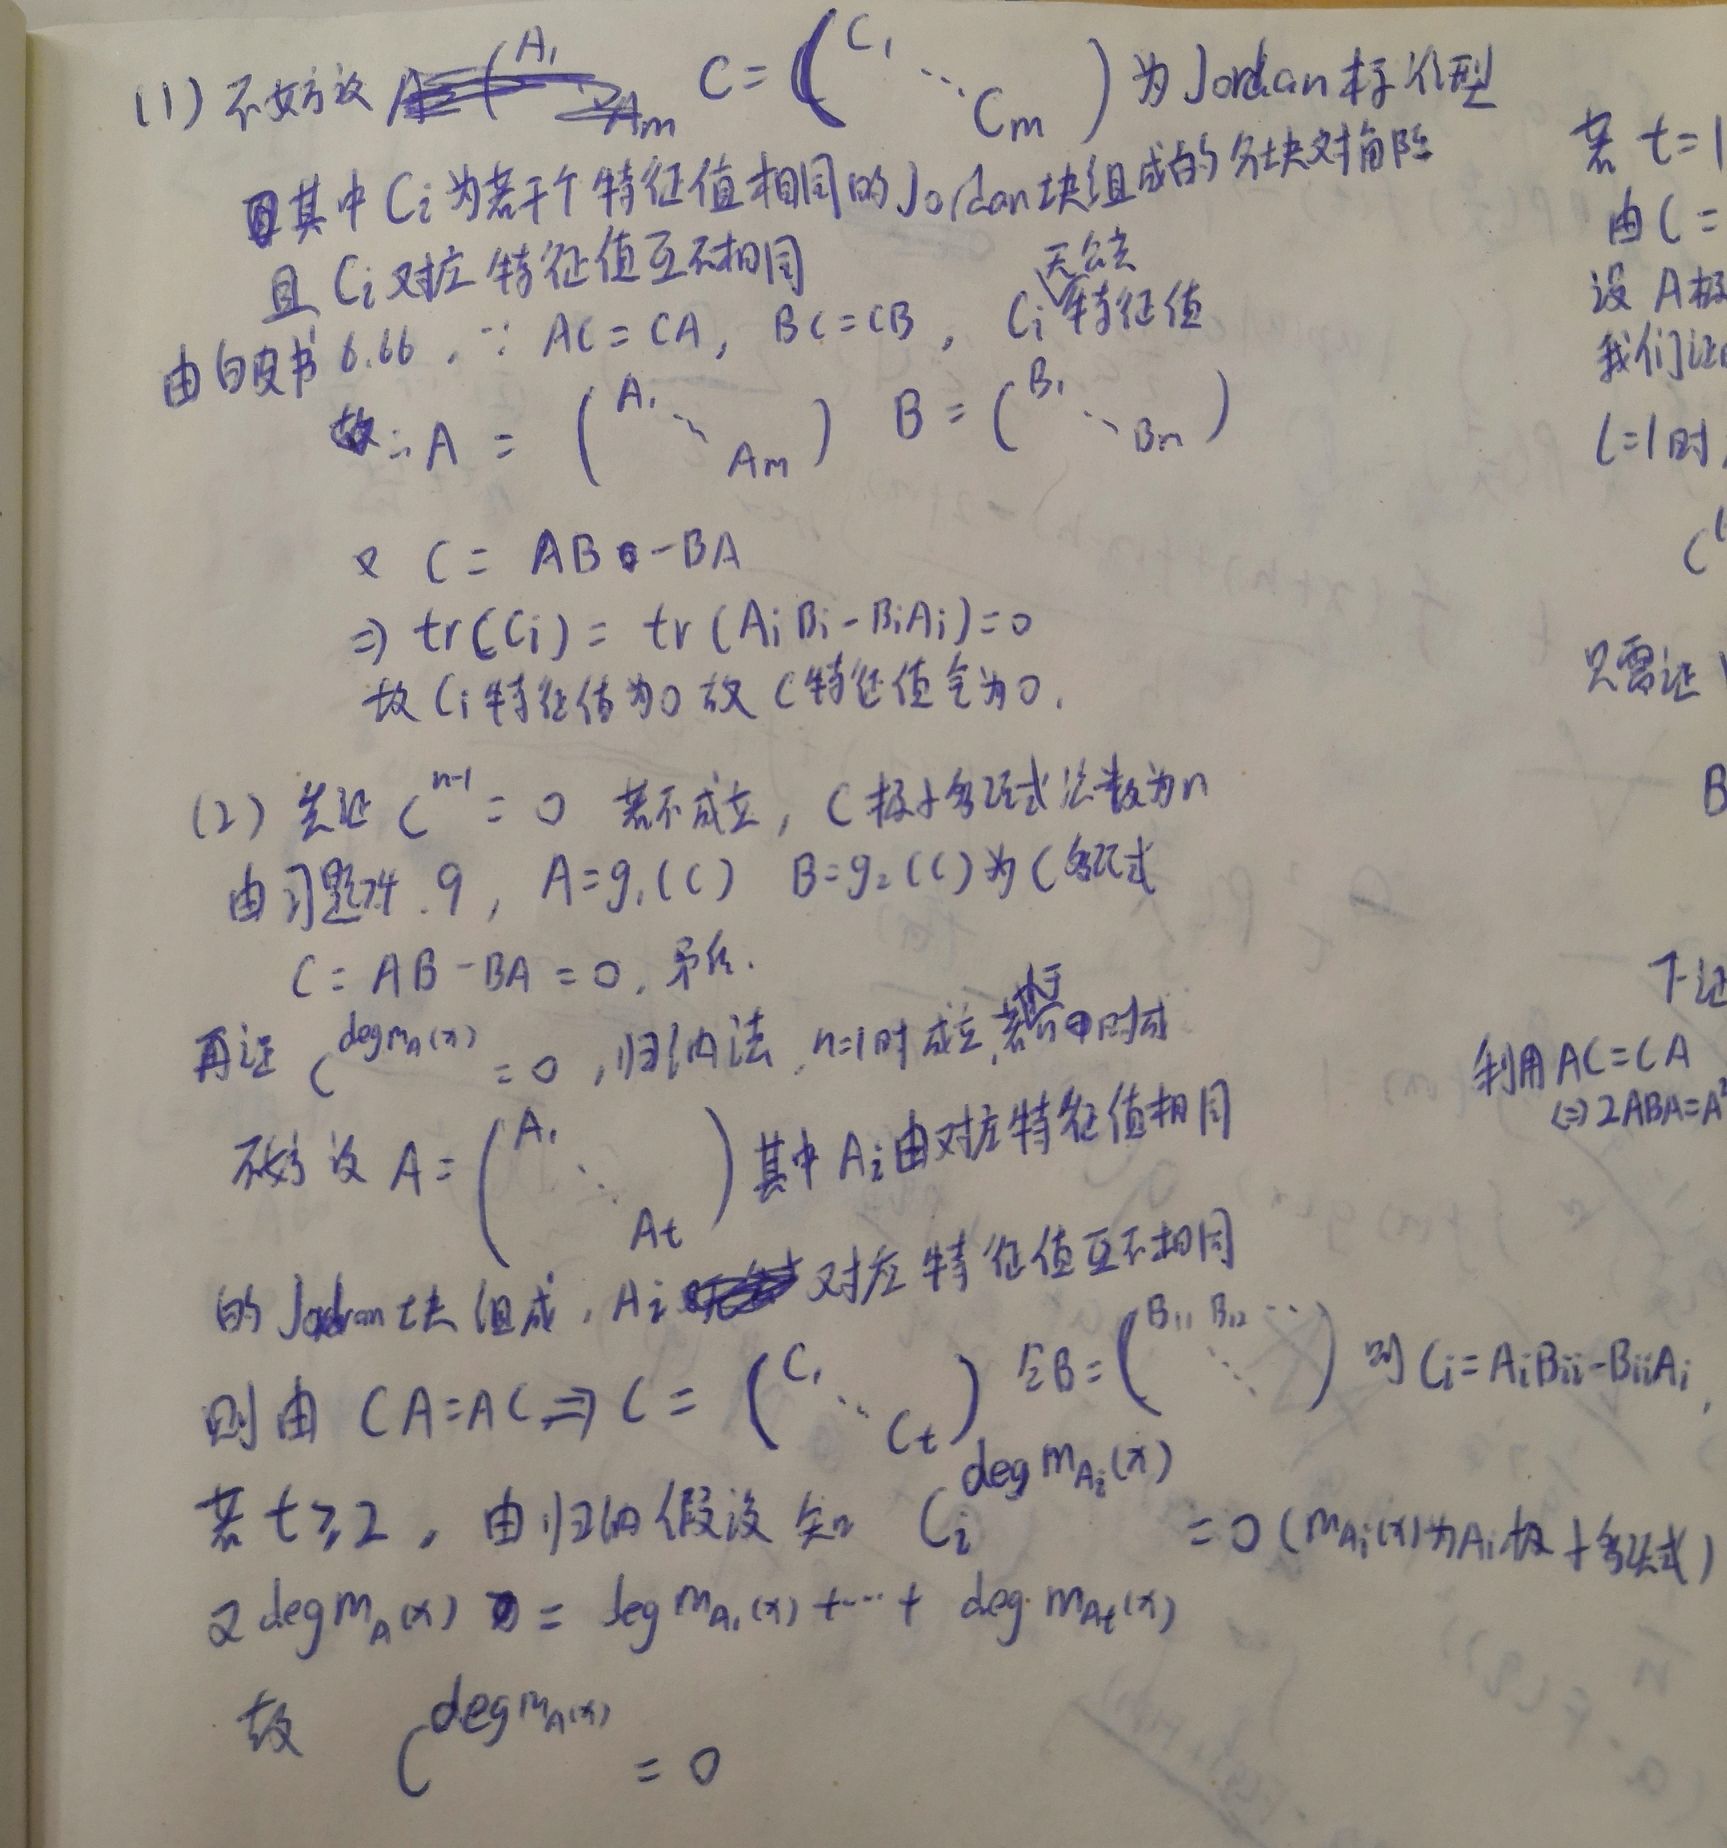 (1) 不妨设 C = ( C₁ ⋱ Cm ) 为 Jordan 标准型
且其中 Ci 为若干个特征值相同的 Jordan 块组成的分块对角阵
且 Ci 对应特征值互不相同
由白皮书 6.66, ∵ AC = CA, BC = CB, Ci 无公共特征值
∴ A = ( A₁ ⋱ Am ) B = ( B₁ ⋱ Bm )
又 C = AB - BA
⇒ tr(Ci) = tr(AiBi - BiAi) = 0
故 Ci 特征值为0 故 C 特征值全为0.
(2) 先证 C^{n-1} = 0 若不成立, C 极小多项式次数为 n
由习题 7.4.9, A = g₁(C) B = g₂(C) 为 C 多项式
C = AB - BA = 0, 矛盾.
再证 C^{deg m_A(x)} = 0, 归纳法, n=1时成立, 小于n时成
不妨设 A = ( A₁ ⋱ At ) 其中 Ai 由对应特征值相同
的 Jordan 块组成, Ai 对应特征值互不相同
则由 CA = AC ⇒ C = ( C₁ ⋱ Ct ) 令 B = ( B₁₁ B₁₂ ⋯ ⋱ ) 则 Ci = AiBii - BiiAi,
若 t ≥ 2, 由归纳假设知 Ci^{deg m_{Ai}(x)} = 0 (m_{Ai}(x) 为 Ai 极小多项式)
又 deg m_A(x) = deg m_{A₁}(x) + ⋯ + deg m_{At}(x)
故 C^{deg m_A(x)} = 0
若 t = 1
由 C =
设 A 极
我们证
l=1时
C
只需证
B
下证
利用 AC = CA
⇔ 2ABA = A²